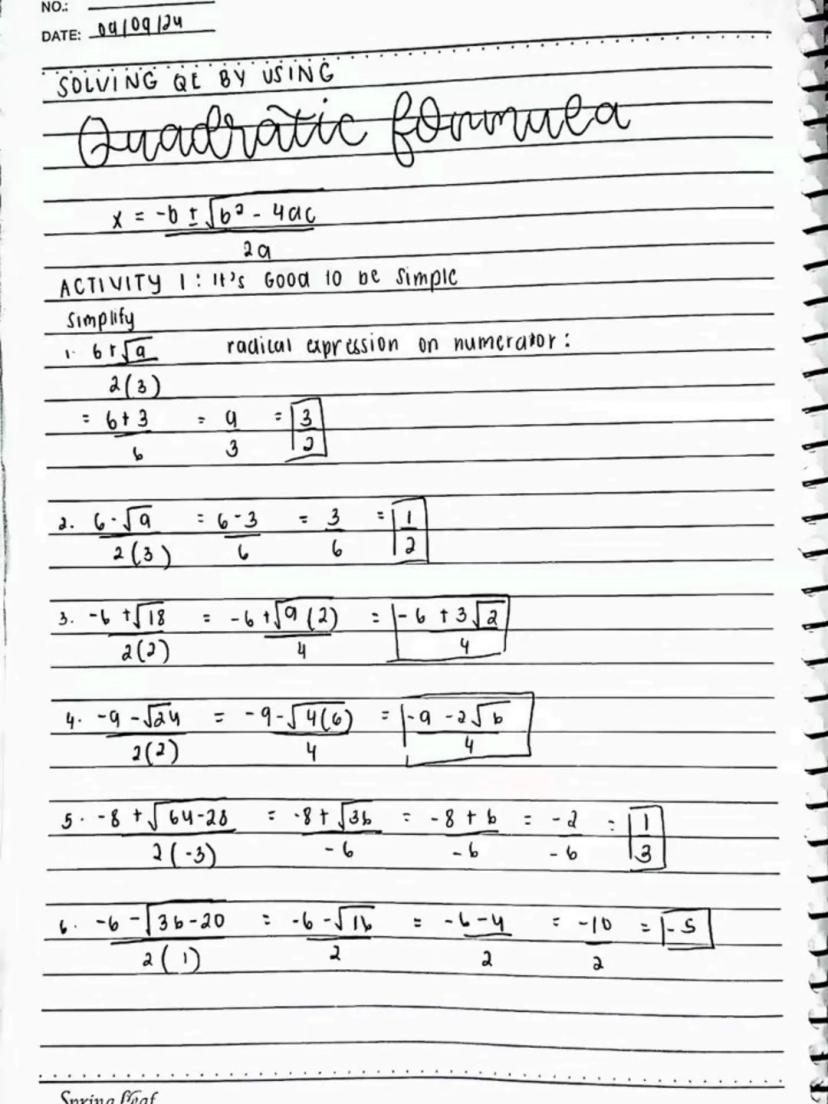 NO.:
DATE: 09/09/24
SOLVING QE BY USING
Quadratic formula
x = -b ± √b² - 4ac
2a
ACTIVITY 1: It's Good to be Simple
Simplify
1. 6+√9 radical expression on numerator:
2(3)
= 6+3 = 9 = 3
6 3 2
2. 6-√9 = 6-3 = 3 = 1
2(3) 6 6 2
3. -6 +√18 = -6+√9(2) = -6 + 3√2
2(2) 4 4
4. -9 -√24 = -9-√4(6) = -9 -2√6
2(2) 4 4
5. -8 +√64-28 = -8+√36 = -8 + 6 = -2 = 1
2(-3) -6 -6 -6 3
6. -6 -√36-20 = -6-√16 = -6-4 = -10 = -5
2(1) 2 2 2
Spring Leaf